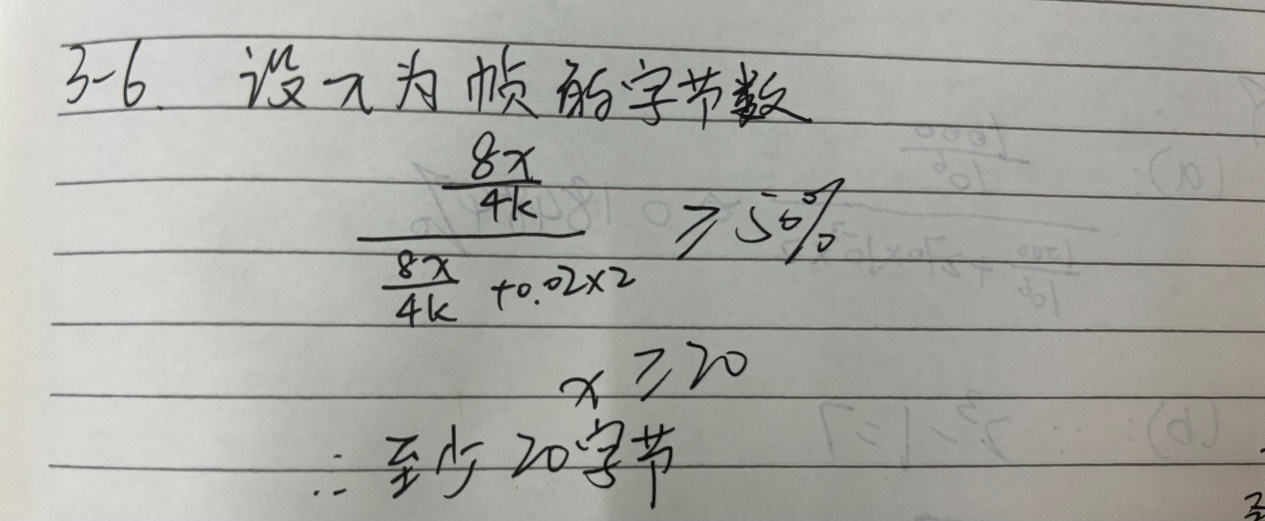 3-6. 设x为帧的字节数
8x
4k
8x
4k +0.02×2
≥50%
x≥20
∴至少20字节